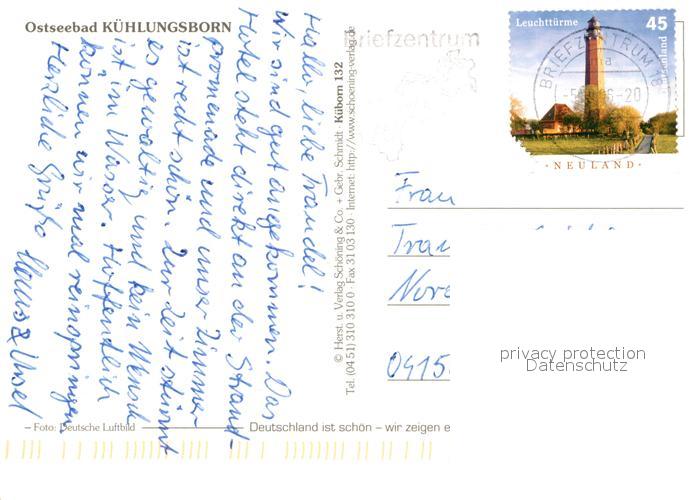 Ostseebad KÜHLUNGSBORN
Hallo, liebe Traudel!
Wir sind gut angekommen. Das
Hotel steht direkt an der Strand-
promenade und unser Zimmer
ist recht schön. Zur Zeit stürmt
es gewaltig und kein Mensch
ist im Wasser. Hoffentlich
können wir mal reinspringen
Herzliche Grüße
– Foto: Deutsche Luftbild
Deutschland ist schön – wir zeigen e
© Herst. u. Verlag Schöning & Co. + Gebr. Schmidt · Küborn 132
Tel. (04 51) 310 310 0 · Fax 31 03 130 · Internet: http://www.schoening-verlag.de
Briefzentrum
Leuchttürme
45
BRIEFZENTRUM 18
· NEULAND ·
Frau
Trau
0415
privacy protection
Datenschutz